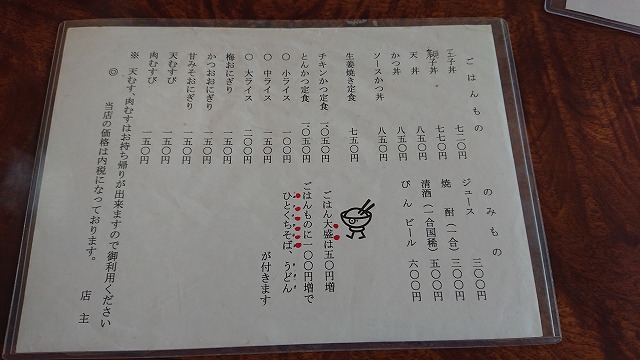 ごはんもの
玉子丼 七二〇円
親子丼 七七〇円
天丼 八五〇円
かつ丼 八五〇円
ソースかつ丼 八五〇円
生姜焼き定食 七五〇円
チキンかつ定食 一、〇五〇円
とんかつ定食 一、〇五〇円
〇 小ライス 一〇〇円
〇 中ライス 一五〇円
〇 大ライス 二〇〇円
梅おにぎり 一五〇円
かつおおにぎり 一五〇円
甘みそおにぎり 一五〇円
天むすび 一五〇円
肉むすび 一五〇円
のみもの
ジュース 三〇〇円
焼 酎(一合) 三〇〇円
清酒(一合国稀) 五〇〇円
びん ビール 六〇〇円
ごはん大盛は五〇円増
ごはんものに一〇〇円増で
ひとくちそば、うどん
が付きます
※ 天むす、肉むすはお持ち帰りが出来ますので御利用ください
◎ 当店の価格は内税になっております。
店 主